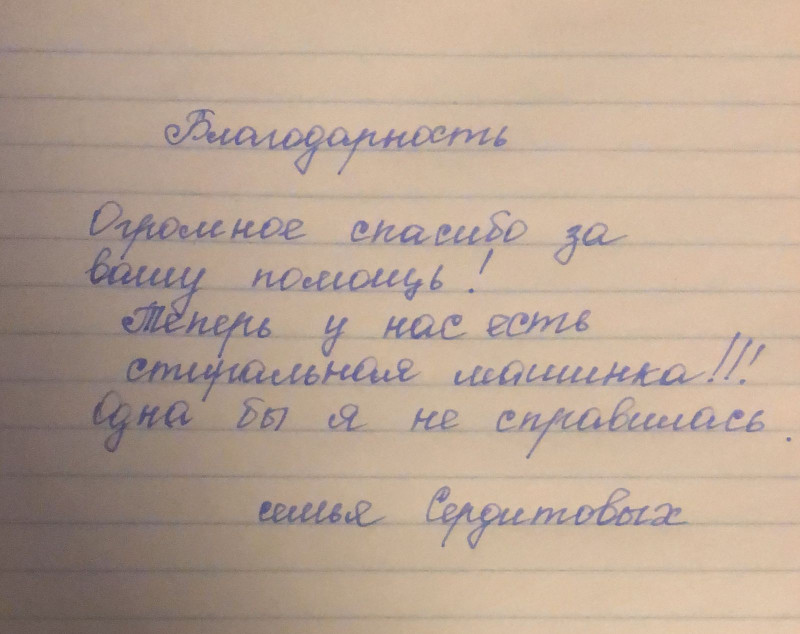 Благодарность
Огромное спасибо за
вашу помощь!
Теперь у нас есть
стиральная машинка!!!
Одна бы я не справилась.
семья Сердитовых